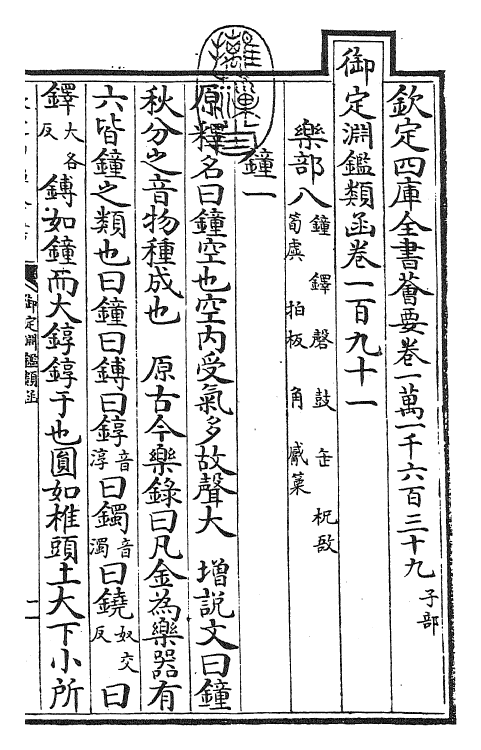 欽定四庫全書薈要卷一萬一千六百三十九 子部
御定淵鑑類函卷一百九十一
樂部八 鐘 鐸 磬 鼓 缶 柷敔
筍虡 拍板 角 觱篥
鐘一
原釋名曰鐘空也空内受氣多故聲大 增説文曰鐘
秋分之音物種成也 原古今樂錄曰凡金為樂器有
六皆鐘之類也曰鐘曰鎛曰錞音淳曰鐲音濁曰鐃奴交反曰
鐸大各反鎛如鐘而大錞錞于也圓如椎頭土大下小所
御定淵鑑類函
一